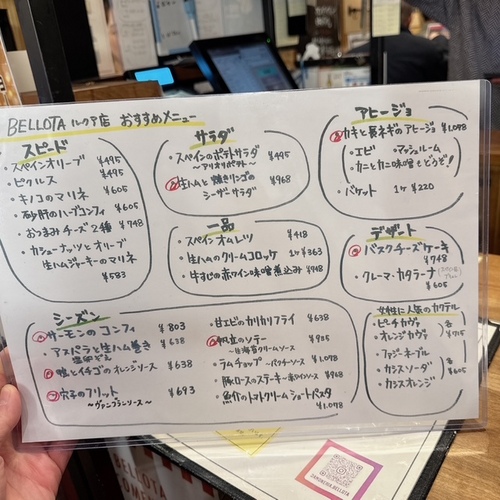 BELLOTA ルクア店 おすすめメニュー
スピード
・スペインオリーブ ¥495
・ピクルス ¥495
・キノコのマリネ ¥605
・砂肝のハーブコンフィ ¥605
・おつまみチーズ2種 ¥748
・カシューナッツとオリーブ
生ハムジャーキーのマリネ
¥583
サラダ
・スペインのポテトサラダ ¥495
〜アリオリポテト〜
生ハムと焼きリンゴの ¥968
シーザーサラダ
一品
・スペインオムレツ ¥418
・生ハムのクリームコロッケ 1ケ¥363
・牛すじの赤ワイン味噌煮込み ¥748
アヒージョ
カキと長ネギのアヒージョ ¥1,078
・エビ ・マッシュルーム
・カニとカニ味噌もどうぞ!
・バケット 1ケ ¥220
デザート
バスクチーズケーキ
¥748
・クレーマ・カタラーナ
¥605
シーズン
サーモンのコンフィ ¥803
・アスパラと生ハム巻き ¥638
鴨とイチゴのオレンジソース ¥638
穴子のフリット ¥693
〜ヴァンブランソース〜
・甘エビのカリカリフライ ¥638
帆立のソテー ¥935
・ラムチョップ 〜パクチーソース ¥1,078
・豚ロースのステーキ 赤ワインソース ¥968
・魚介のトマトクリームショートパスタ
¥1,078
女性に人気のカクテル
・ピーチカヴァ
・オレンジカヴァ
各
¥715
・ファジーネーブル
・カシスソーダ
・カシスオレンジ
各
¥605
BELLOTA